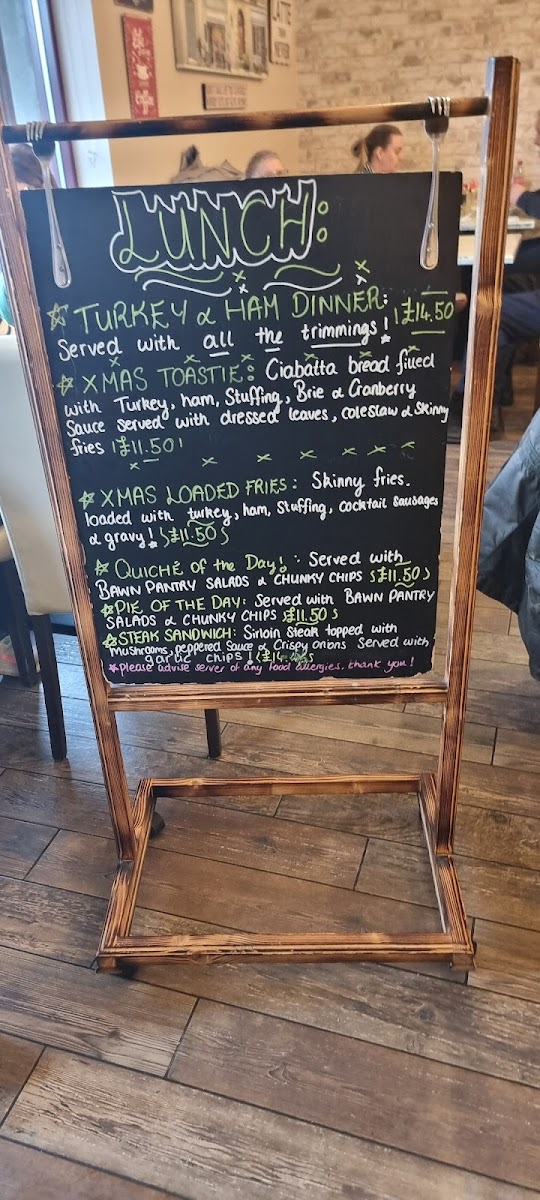 LUNCH:
TURKEY & HAM DINNER: £14.50
Served with all the trimmings!
XMAS TOASTIE: Ciabatta bread filled
with Turkey, ham, Stuffing, Brie & Cranberry
Sauce served with dressed leaves, coleslaw & Skinny
fries £11.50!
XMAS LOADED FRIES: Skinny fries.
loaded with turkey, ham, stuffing, cocktail sausages
& gravy! £11.50
QUICHÉ of the Day!: Served with
BAWN PANTRY SALADS & CHUNKY CHIPS £11.50
PIE OF THE DAY: Served with BAWN PANTRY
SALADS & CHUNKY CHIPS £11.50
STEAK SANDWICH: Sirloin Steak topped with
Mushrooms, peppered Sauce & Crispy onions Served with
garlic chips!
*please advise server of any food allergies. thank you!